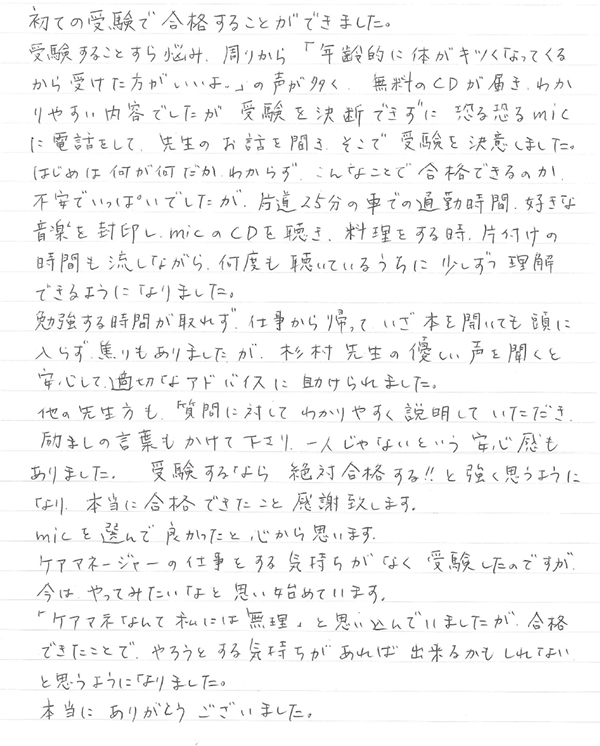 初ての受験で合格することができました。
受験することすら悩み、周りから「年齢的に体がキツくなってくる
から受けた方がいいよ。」の声が多く、無料のCDが届き、わか
りやすい内容でしたが受験を決断できずに恐る恐るmic
に電話をして、先生のお話を聞き、そこで受験を決意しました。
はじめは何が何だかわからず、こんなことで合格できるのか、
不安でいっぱいでしたが、片道25分の車での通勤時間、好きな
音楽を封印し、micのCDを聴き、料理をする時、片付けの
時間も流しながら、何度も聴いているうちに少しずつ理解
できるようになりました。
勉強する時間が取れず、仕事から帰って、いざ本を開いても頭に
入らず、焦りもありましたが、杉村先生の優しい声を聞くと
安心して、適切なアドバイスに助けられました。
他の先生方も、質問に対してわかりやすく説明していただき、
励ましの言葉もかけて下さり、一人じゃないという安心感も
ありました。 受験するなら絶対合格する!!と強く思うように
なり、本当に合格できたこと感謝致します。
micを選んで良かったと、心から思います。
ケアマネージャーの仕事をする気持ちがなく受験したのですが、
今は、やってみたいなと思い始めています。
「ケアマネなんて私には無理」と思い込んでいましたが、合格
できたことで、やろうとする気持ちがあれば出来るかもしれない
と思うようになりました。
本当にありがとうございました。